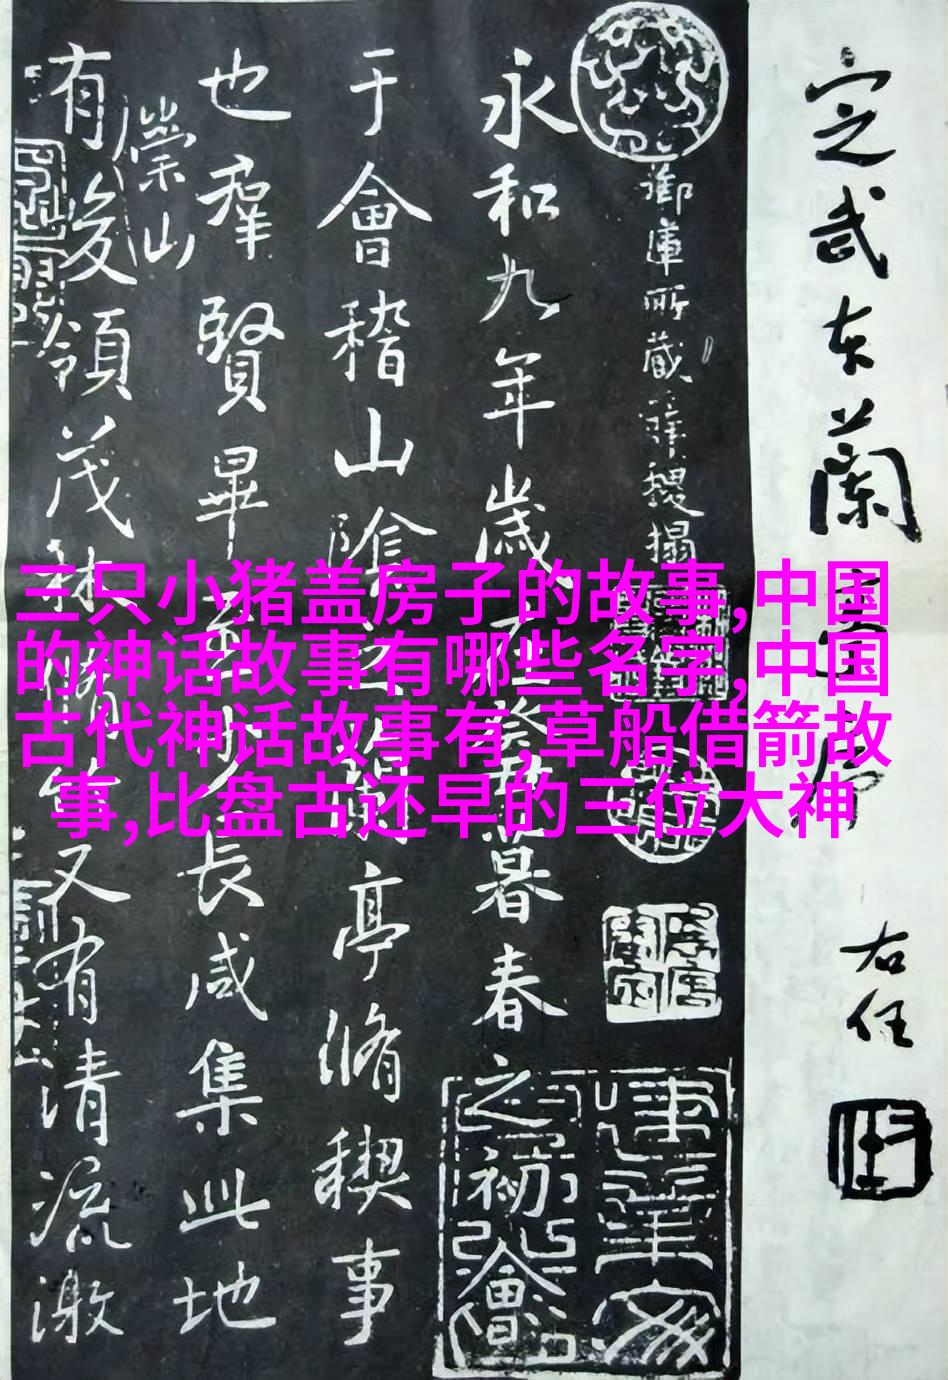 定武本蘭亭序
右任
御庫所藏薛稷搨
永和九年歲在癸丑暮春之初會
于會稽山陰之蘭亭脩稧事
也羣賢畢至少長咸集此地
崇山
有峻領茂林脩竹又有清流激
三只小猪盖房子的故事,中国
的神话故事有哪些名字,中国
古代神话故事有,草船借箭故
事,比盘古还早的三位大神